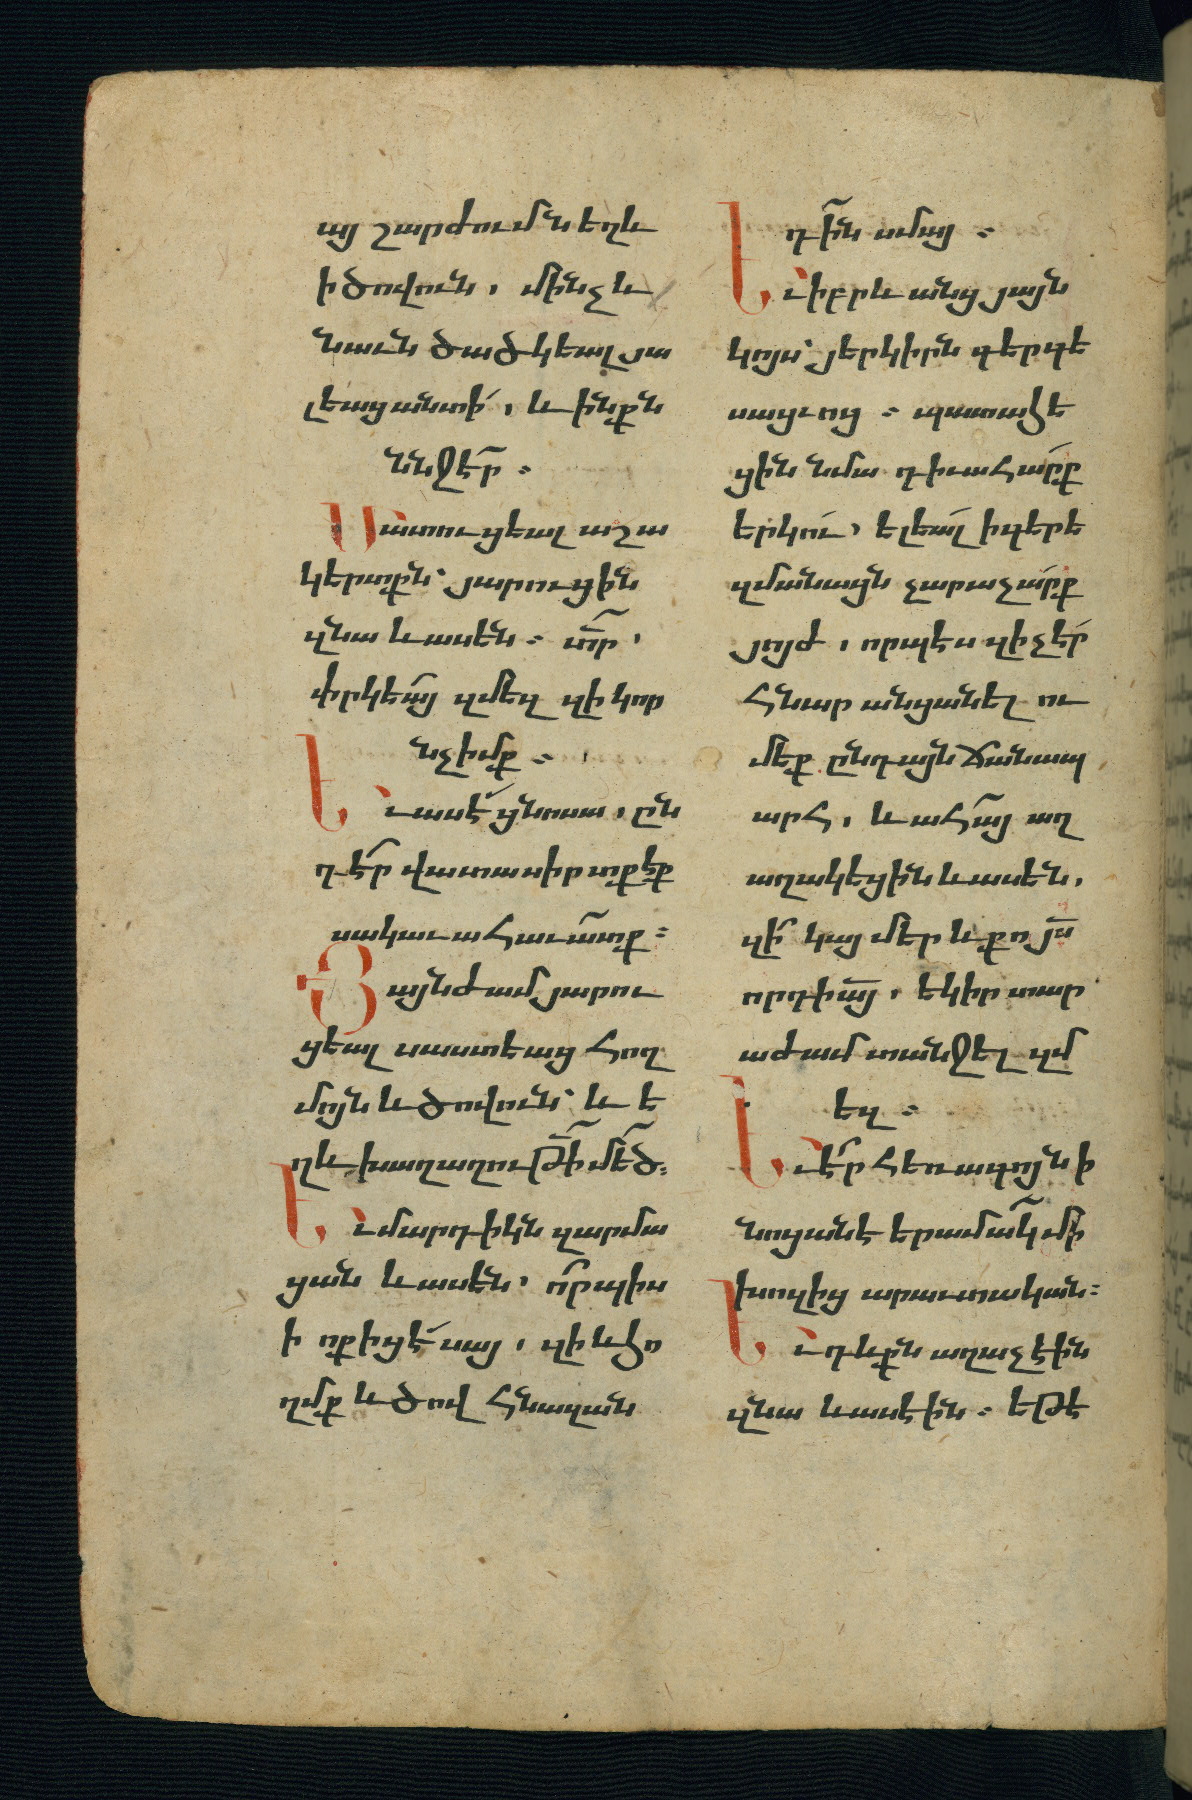 այ շարժումն եղև
ի ծովուն, մինչև
նաւն ծածկեալ յա
լեացանտի, և ինքն
ննջէր ։
Մատուցեալ աշա
կերտքն՝ յարուցին
զնա և ասեն ։ տր՛,
փրկեա զմեզ զի կոր
նչիմք ։
Եւ ասէ ցնոսա, ըն
դէր վատասիրտքէք
սակաւահաւատք ։
Յայնժամ յարու
ցեալ սաստեաց հող
մոյն և ծովուն՝ և ե
ղև խաղաղութի մեծ ։
Եւ մարդիկն զարմա
ցան և ասեն, որպիս
ի ոք իցէ սայ, զի և հո
ղմք և ծով հնազան
դին սմայ ։
Եւ իբրև անց յայն
կոյս՝ յերկիրն գերգե
սացւոց ։ պատահե
ցին նմա դիւահարք
երկու, ելեալ ի գերե
զմանացն չարաչարք
յոյժ, որպէս զի չէր
հնար անցանել ու
մեք ընդ այն ճանապ
արհ, և ահայ աղ
աղակեցին և ասեն,
զի կայ մեր և քո յս
որդի այ, եկիր տար
աժամ տանջել զմ
եզ ։
Եւ էր հեռագոյն ի
նոցանէ երամակ մի
խոզից արաւտական ։
Եւ դևքն աղաչէին
զնա և ասէին ։ եթէ